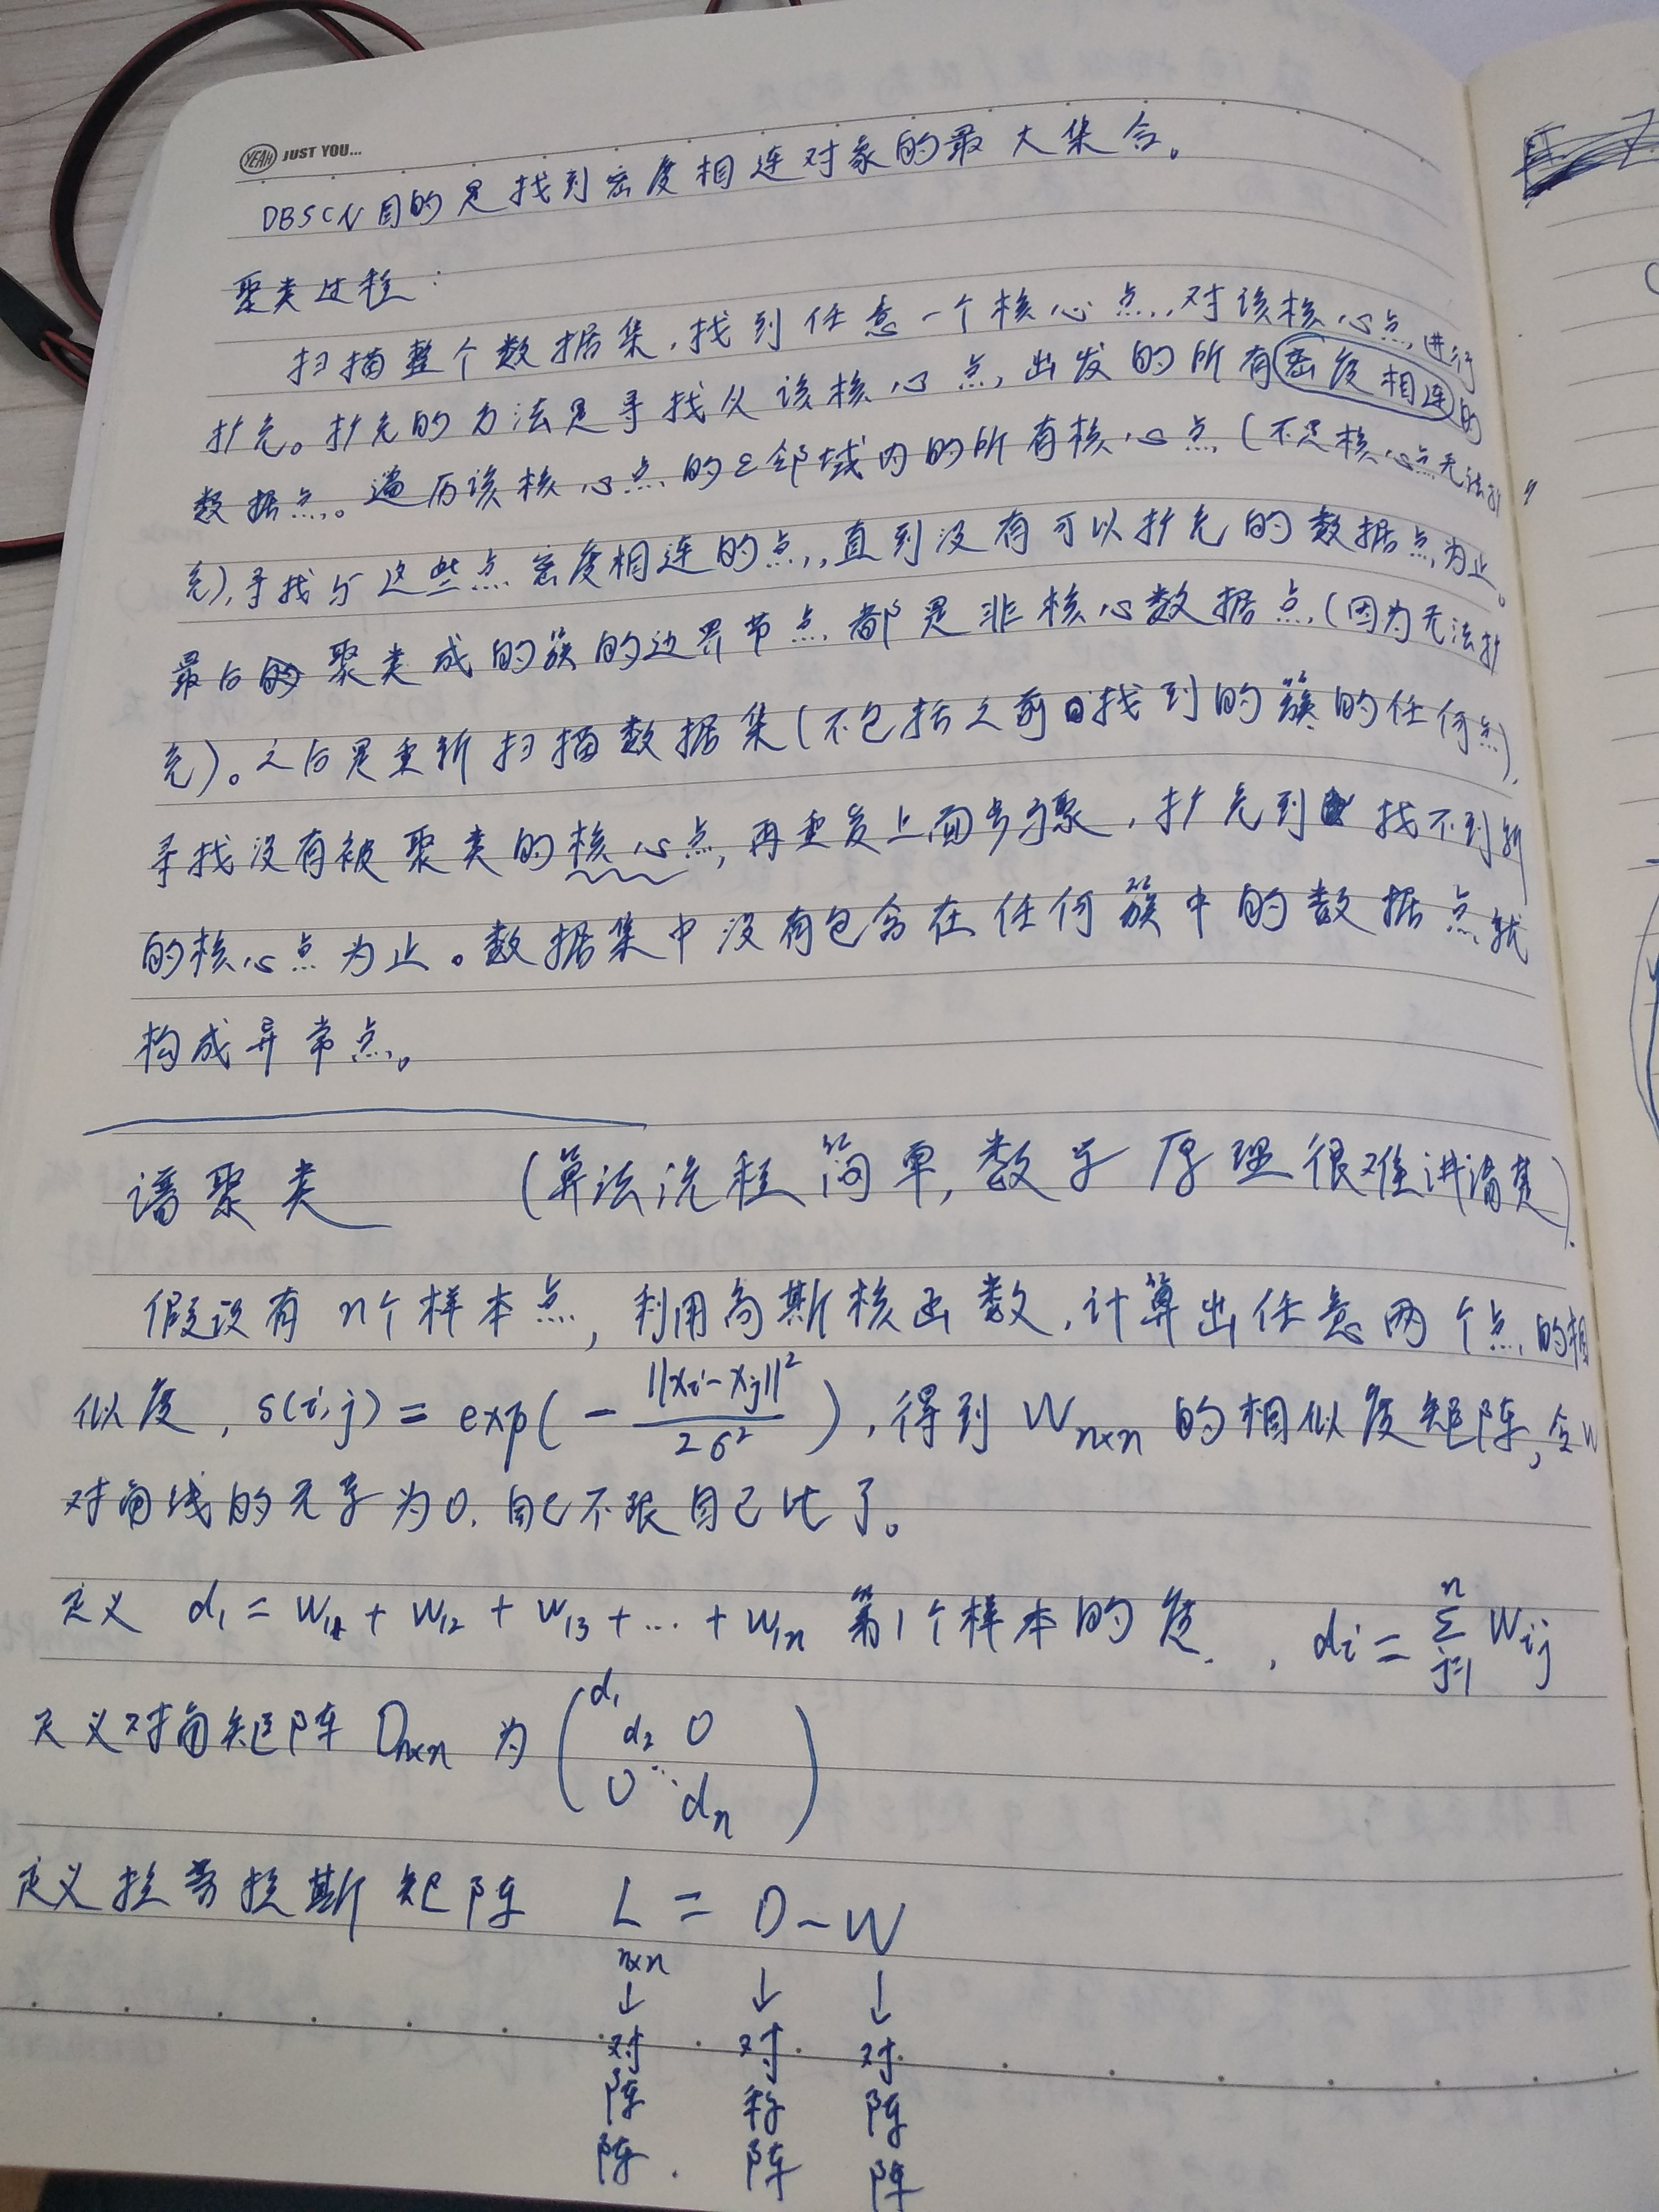 YEAH JUST YOU...
DBSCN目的是找到密度相连对象的最大集合。
聚类过程:
扫描整个数据集,找到任意一个核心点,对该核心点进行
扩充。扩充的方法是寻找从该核心点出发的所有密度相连的
数据点。遍历该核心点的ε邻域内的所有核心点(不是核心点无法扩
充),寻找与这些点密度相连的点,直到没有可以扩充的数据点为止。
最后 聚类成的簇的边界节点都是非核心数据点(因为无法扩
充)。之后是重新扫描数据集(不包括之前找到的簇的任何点),
寻找没有被聚类的核心点,再重复上面步骤,扩充到找不到新
的核心点为止。数据集中没有包含在任何簇中的数据点就
构成异常点。
谱聚类 (算法流程简单,数学原理很难讲清楚).
假设有n个样本点,利用高斯核函数,计算出任意两个点的相
似度,s(i,j) = exp(-||xi-xj||²/2σ²),得到Wn×n的相似度矩阵,令W
对角线的元素为0.自己不跟自己比了。
定义 d1 = W11 + W12 + W13 + … + W1n 第1个样本的度.,di = Σ(j=1→n) Wij
定义对角矩阵 Dn×n 为 (d1 d2 0 0 ⋱ dn)
定义拉普拉斯矩阵 L = D - W
n×n
↓ ↓ ↓
对 对 对
阵 称 阵
阵. 阵 阵